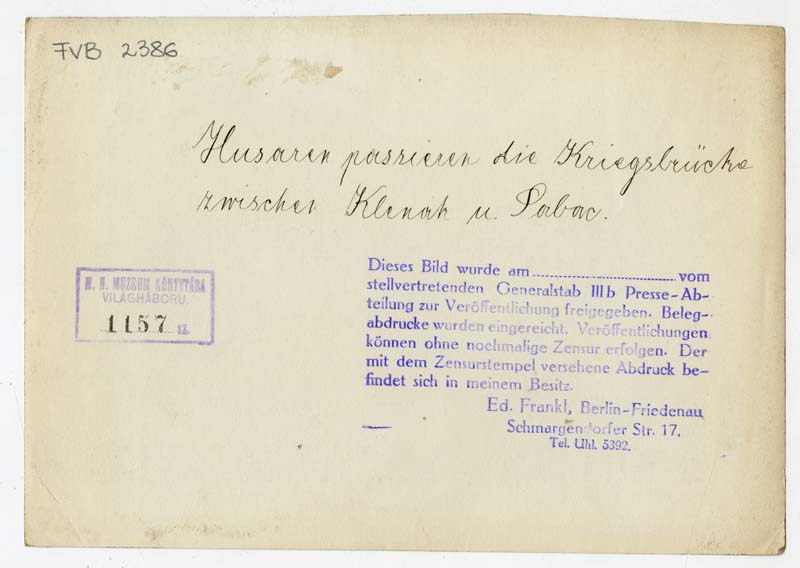 FVB 2386
Husaren passieren die Kriegsbrücke
zwischen Klenak u. Sabac.
M. N. MUZEUM KÖNYVTÁRA
VILÁGHÁBORU.
1157 sz.
Dieses Bild wurde am ........................ vom
stellvertretenden Generalstab IIIb Presse-Ab-
teilung zur Veröffentlichung freigegeben. Beleg-
abdrucke wurden eingereicht. Veröffentlichungen
können ohne nochmalige Zensur erfolgen. Der
mit dem Zensurstempel versehene Abdruck be-
findet sich in meinem Besitz.
Ed. Frankl, Berlin-Friedenau
Schmargendorfer Str. 17.
Tel. Uhl. 5392.